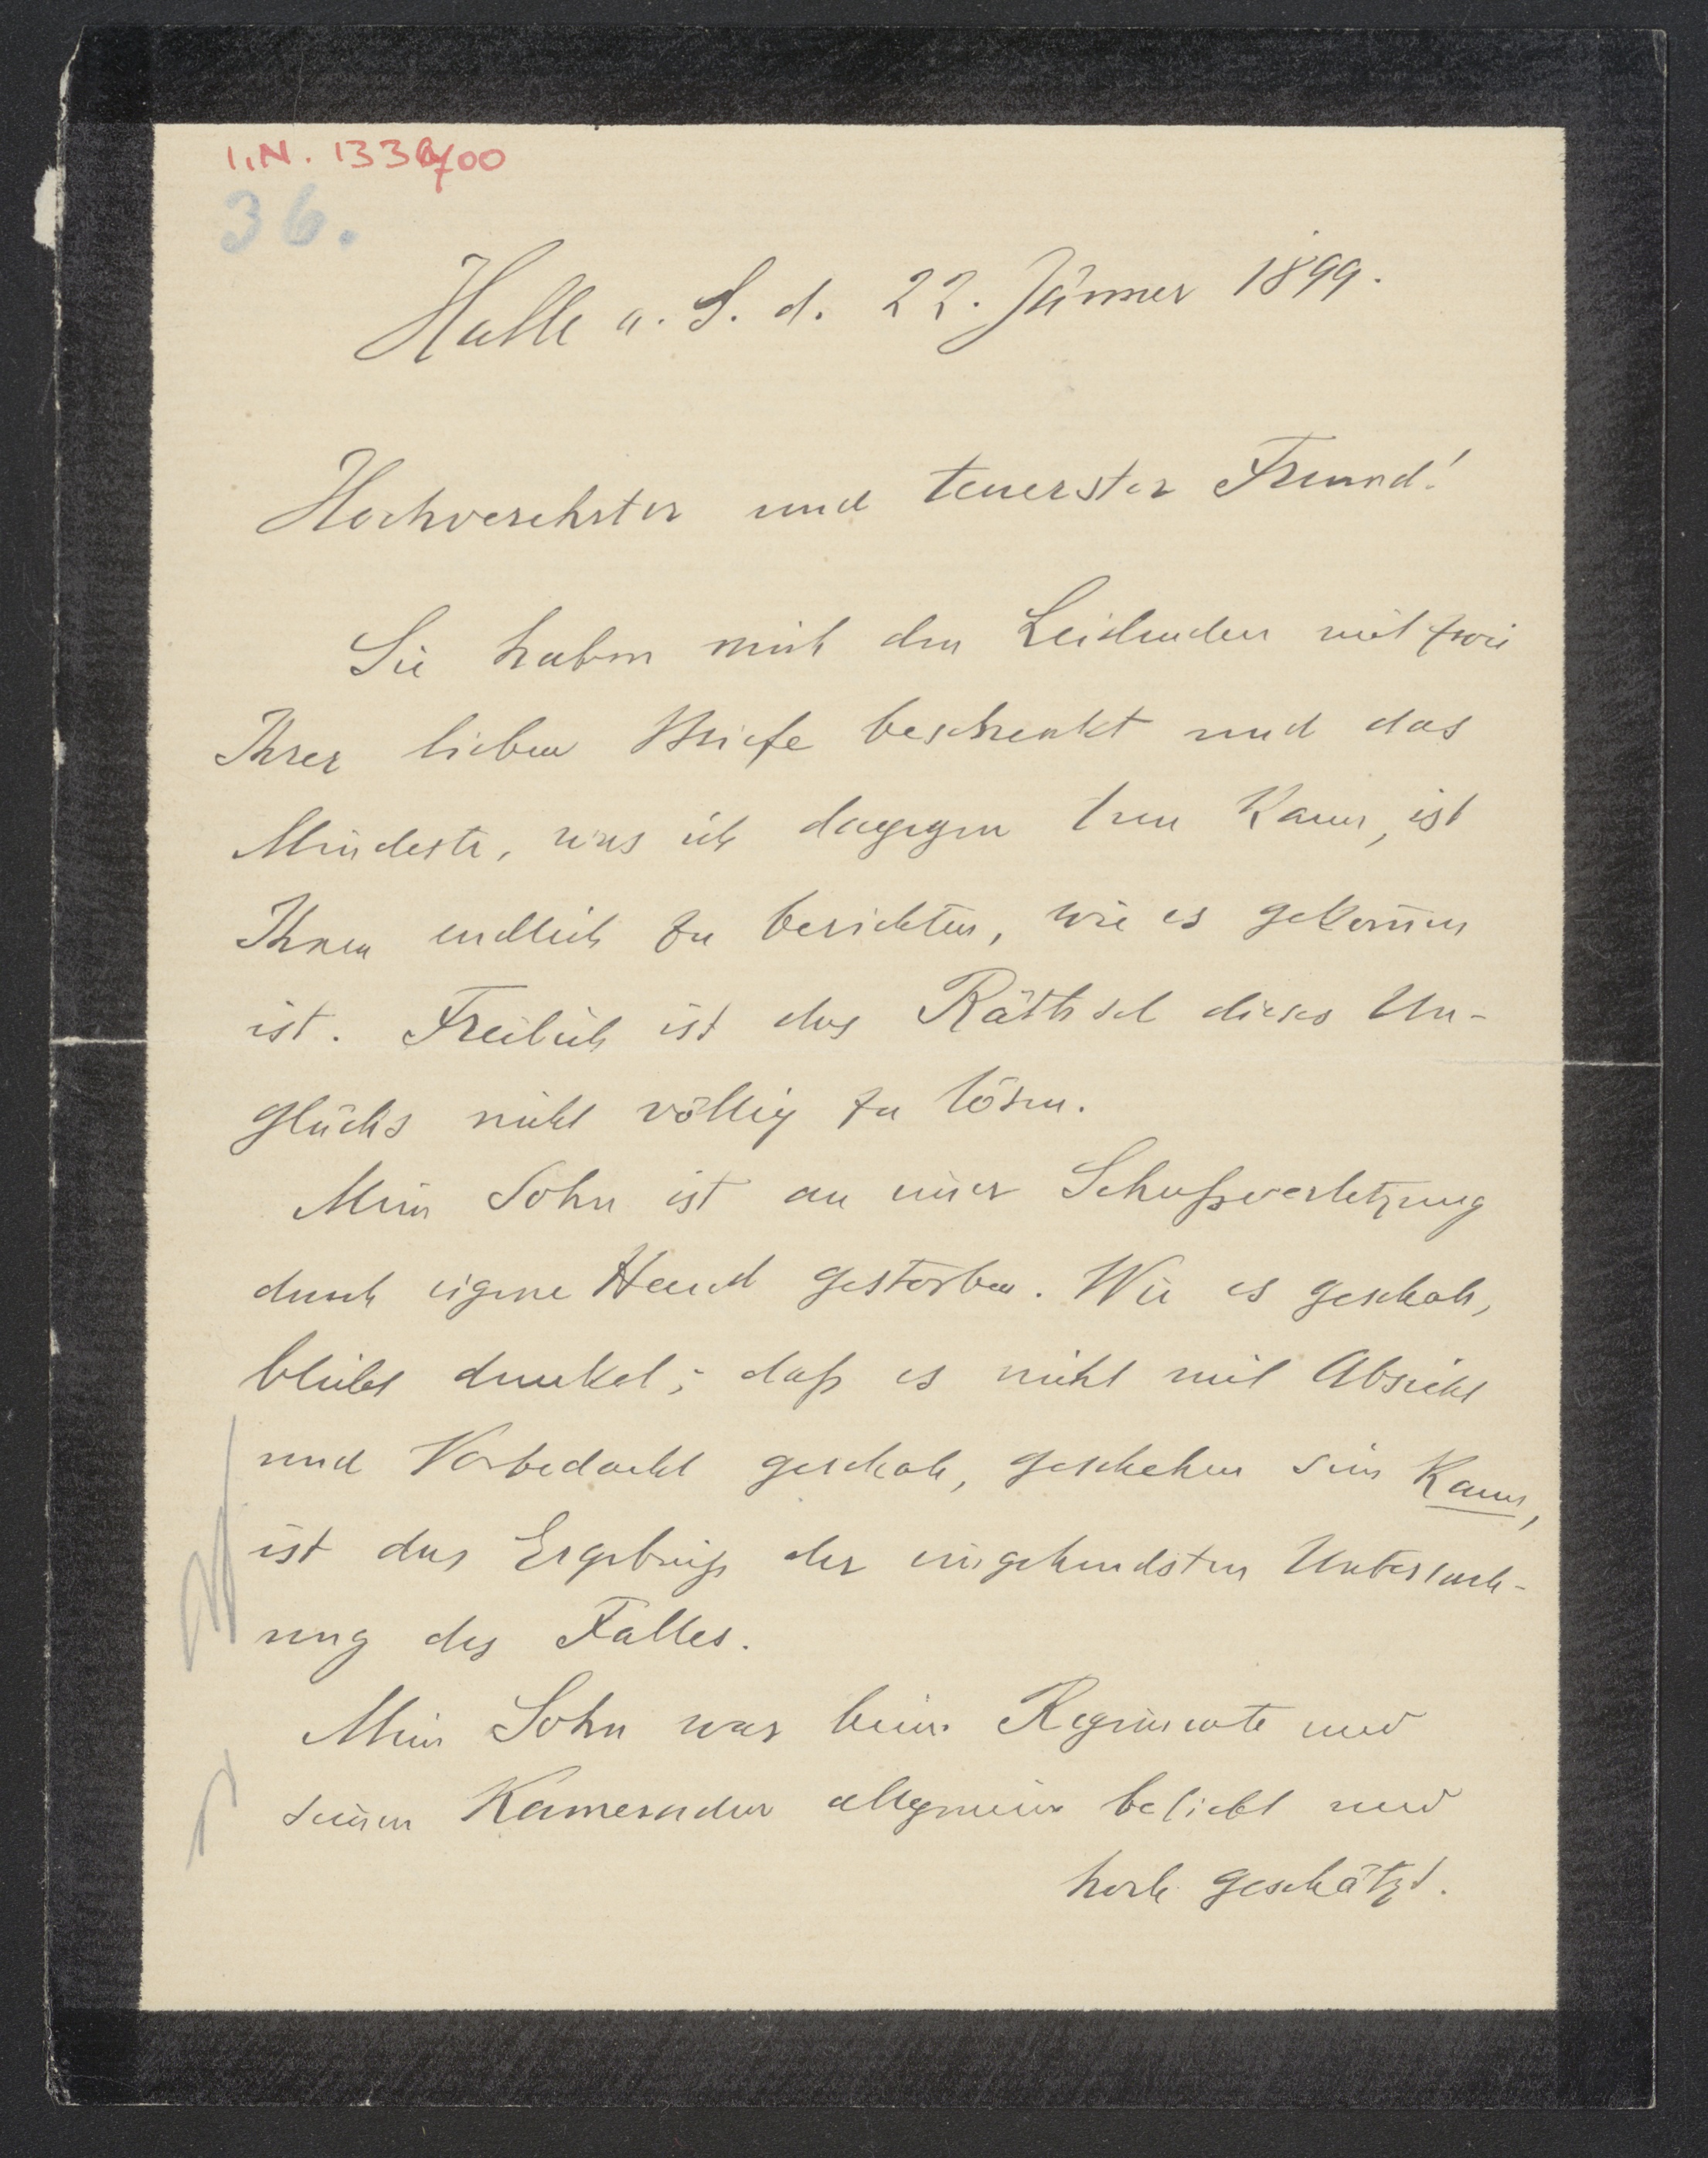 I.N. 133 400
36.
Halle a. S. d. 22. Jänner 1899.
Hochverehrter und teuerster Freund!
Sie haben mich den Leidenden mit zwei
Ihrer lieben Briefe beschenkt und das
Mindeste, was ich dagegen tun kann, ist
Ihnen endlich zu berichten, wie es gekom̄en
ist. Freilich ist das Räthsel dieses Un-
glücks nicht völlig zu lösen.
Mein Sohn ist an einer Schußverletzung
durch eigene Hand gestorben. Wie es geschah,
bleibt dunkel; daß es nicht mit Absicht
und Vorbedacht geschah, geschehen sein kann,
ist das Ergebniß der eingehendsten Untersuch-
ung des Falles.
Mein Sohn war beim Regimente und
seinen Kameraden allgemein beliebt und
hoch geschätzt.